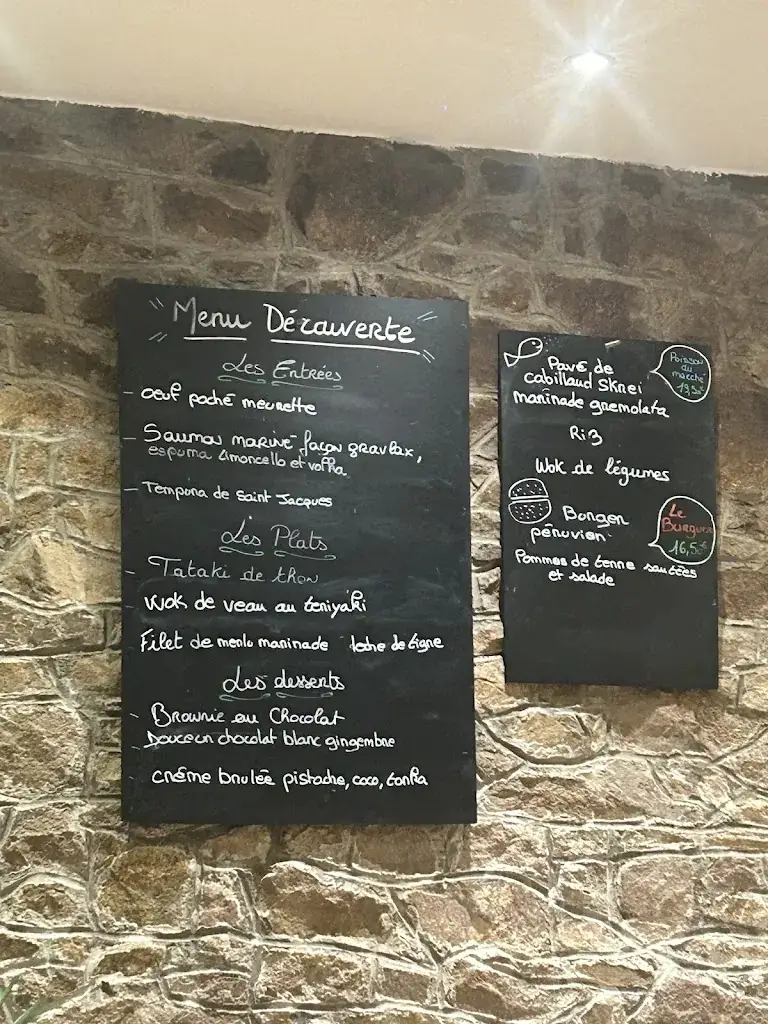 Menu Découverte
Les Entrées
- oeuf poché meurette
- Saumon mariné façon gravlax,
espuma limoncello et vodka
- Tempura de Saint Jacques
Les Plats
- Tataki de thon
- Wok de veau au teriyaki
- Filet de merlu marinade leche de tigre
Les desserts
- Brownie au Chocolat
- Douceur chocolat blanc gingembre
- crème brulée pistache, coco, tonka
Pavé de
cabillaud Skrei
marinade gremolata
Riz
Wok de légumes
Poisson
du
marché
19,50€
Burger
péruvien
Le
Burger
16,50€
Pommes de terre sautées
et salade